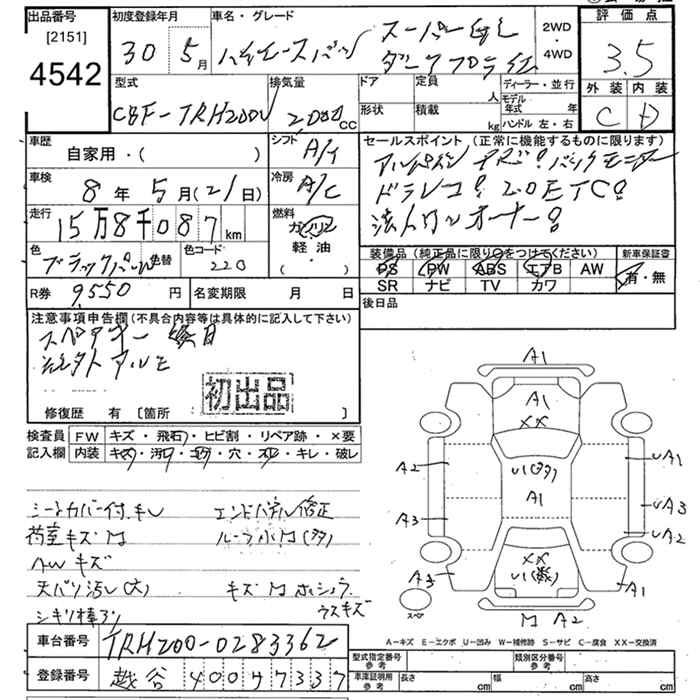 出品番号
[2151]
4542
初度登録年月
30 5月
車名・グレード
ハイエースバン
スーパーGL
ダークプライム
2WD
・
4WD
評価点
3.5
外装 内装
C D
型式
CBF-TRH200V
排気量
2,000 cc
ドア
定員
人
ディーラー・並行
形状
積載
kg
モデル年式 年
ハンドル 左・右
車歴
自家用・( )
シフト
A/T
車検
8年5月(21日)
冷房
A/C
走行
15万8千087km
燃料
ガソリン
軽油
・( )
色
ブラックパール
色替
色コード
220
R券 9,550 円
名変期限 月 日
セールスポイント(正常に機能するものに限ります)
アルパインナビ!バックモニター
ドラレコ!2.0ETC!
法人ワンオーナー!
装備品(純正品に限り○をつけてください)
新車保証書
PS PW ABS エアB AW
SR ナビ TV カワ
有・無
後日品
注意事項申告欄(不具合内容等は具体的に記入して下さい)
スペアキー後日
社外アルミ
初出品
修復歴 有 [箇所 ]
検査員
記入欄
FW キズ・飛石・ヒビ割・リペア跡・×要
内装 キズ・汚れ・コゲ・穴・スレ・キレ・破レ
シートカバー付、キレ
エンドパネル修正
荷室キズM
ルーフ小M(多)
AWキズ
天バリ汚レ(大)
キズM
ウスキズ
A1
A1
XX
U1(多)
A1
XX
U1(数)
A2
A3
A3
UA1
UA3
UA2
A1
M A2
スペア
A-キズ E-エクボ U-凹み W-補修跡 S-サビ C-腐食 XX-交換済
車台番号 TRH200-0283362
登録番号 越谷 400 7337
型式指定番号
参考
類別区分番号
参考
車庫証明用
参考
長さ cm
幅 cm
高さ cm